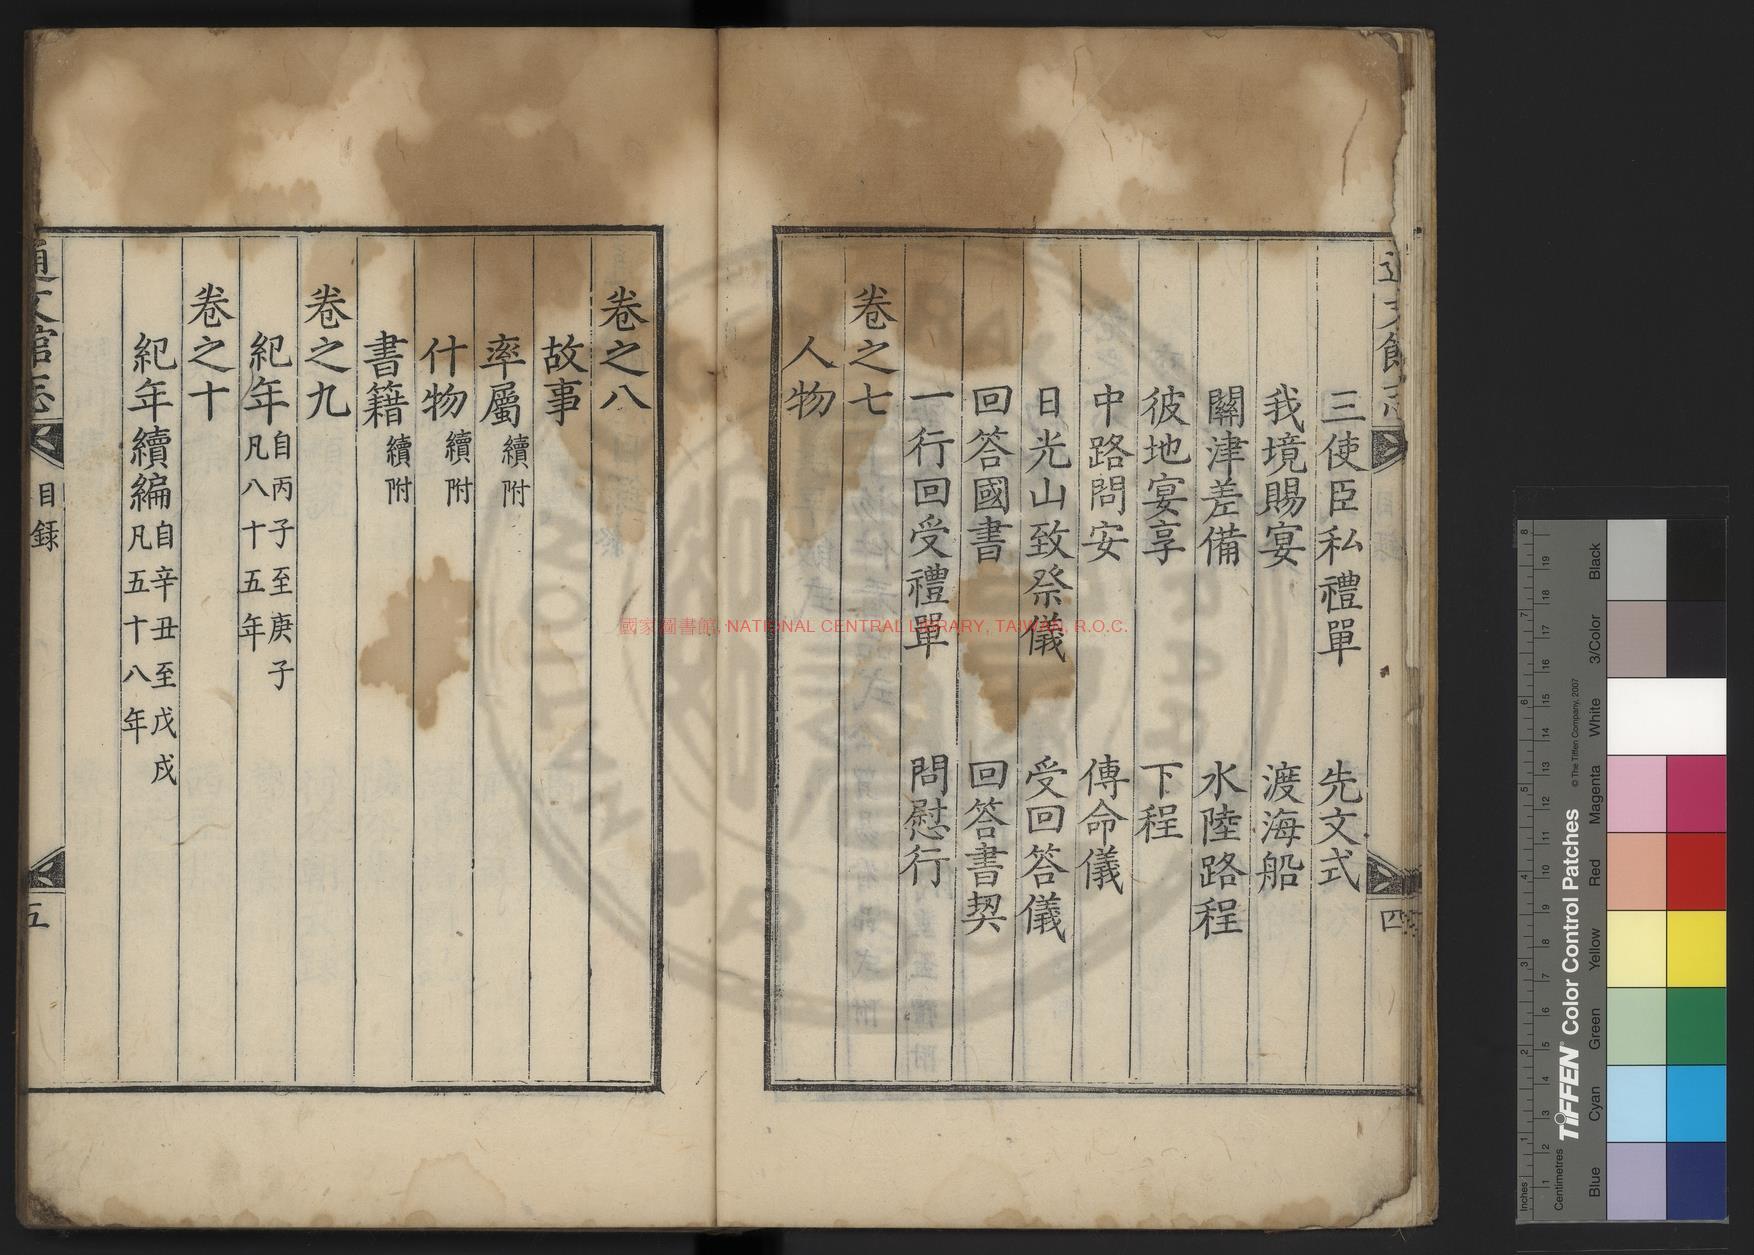 三使臣私禮單 先文式
我境賜宴 渡海船
關津差備 水陸路程
彼地宴享 下程
中路問安 傳命儀
日光山致祭儀 受回答儀
回答國書 回答書契
一行回受禮單 問慰行
卷之七
人物
四
卷之八
故事
率屬 續附
什物 續附
書籍 續附
卷之九
紀年 自丙子至庚子
凡八十五年
卷之十
紀年續編 自辛丑至戊戌
凡五十八年
通文館志 目録 五
國家圖書館, NATIONAL CENTRAL LIBRARY, TAIWAN, R.O.C.
TIFFEN® Color Control Patches
© The Tiffen Company, 2007
Centimetres
Inches
Blue Cyan Green Yellow Red Magenta White 3/Color Black